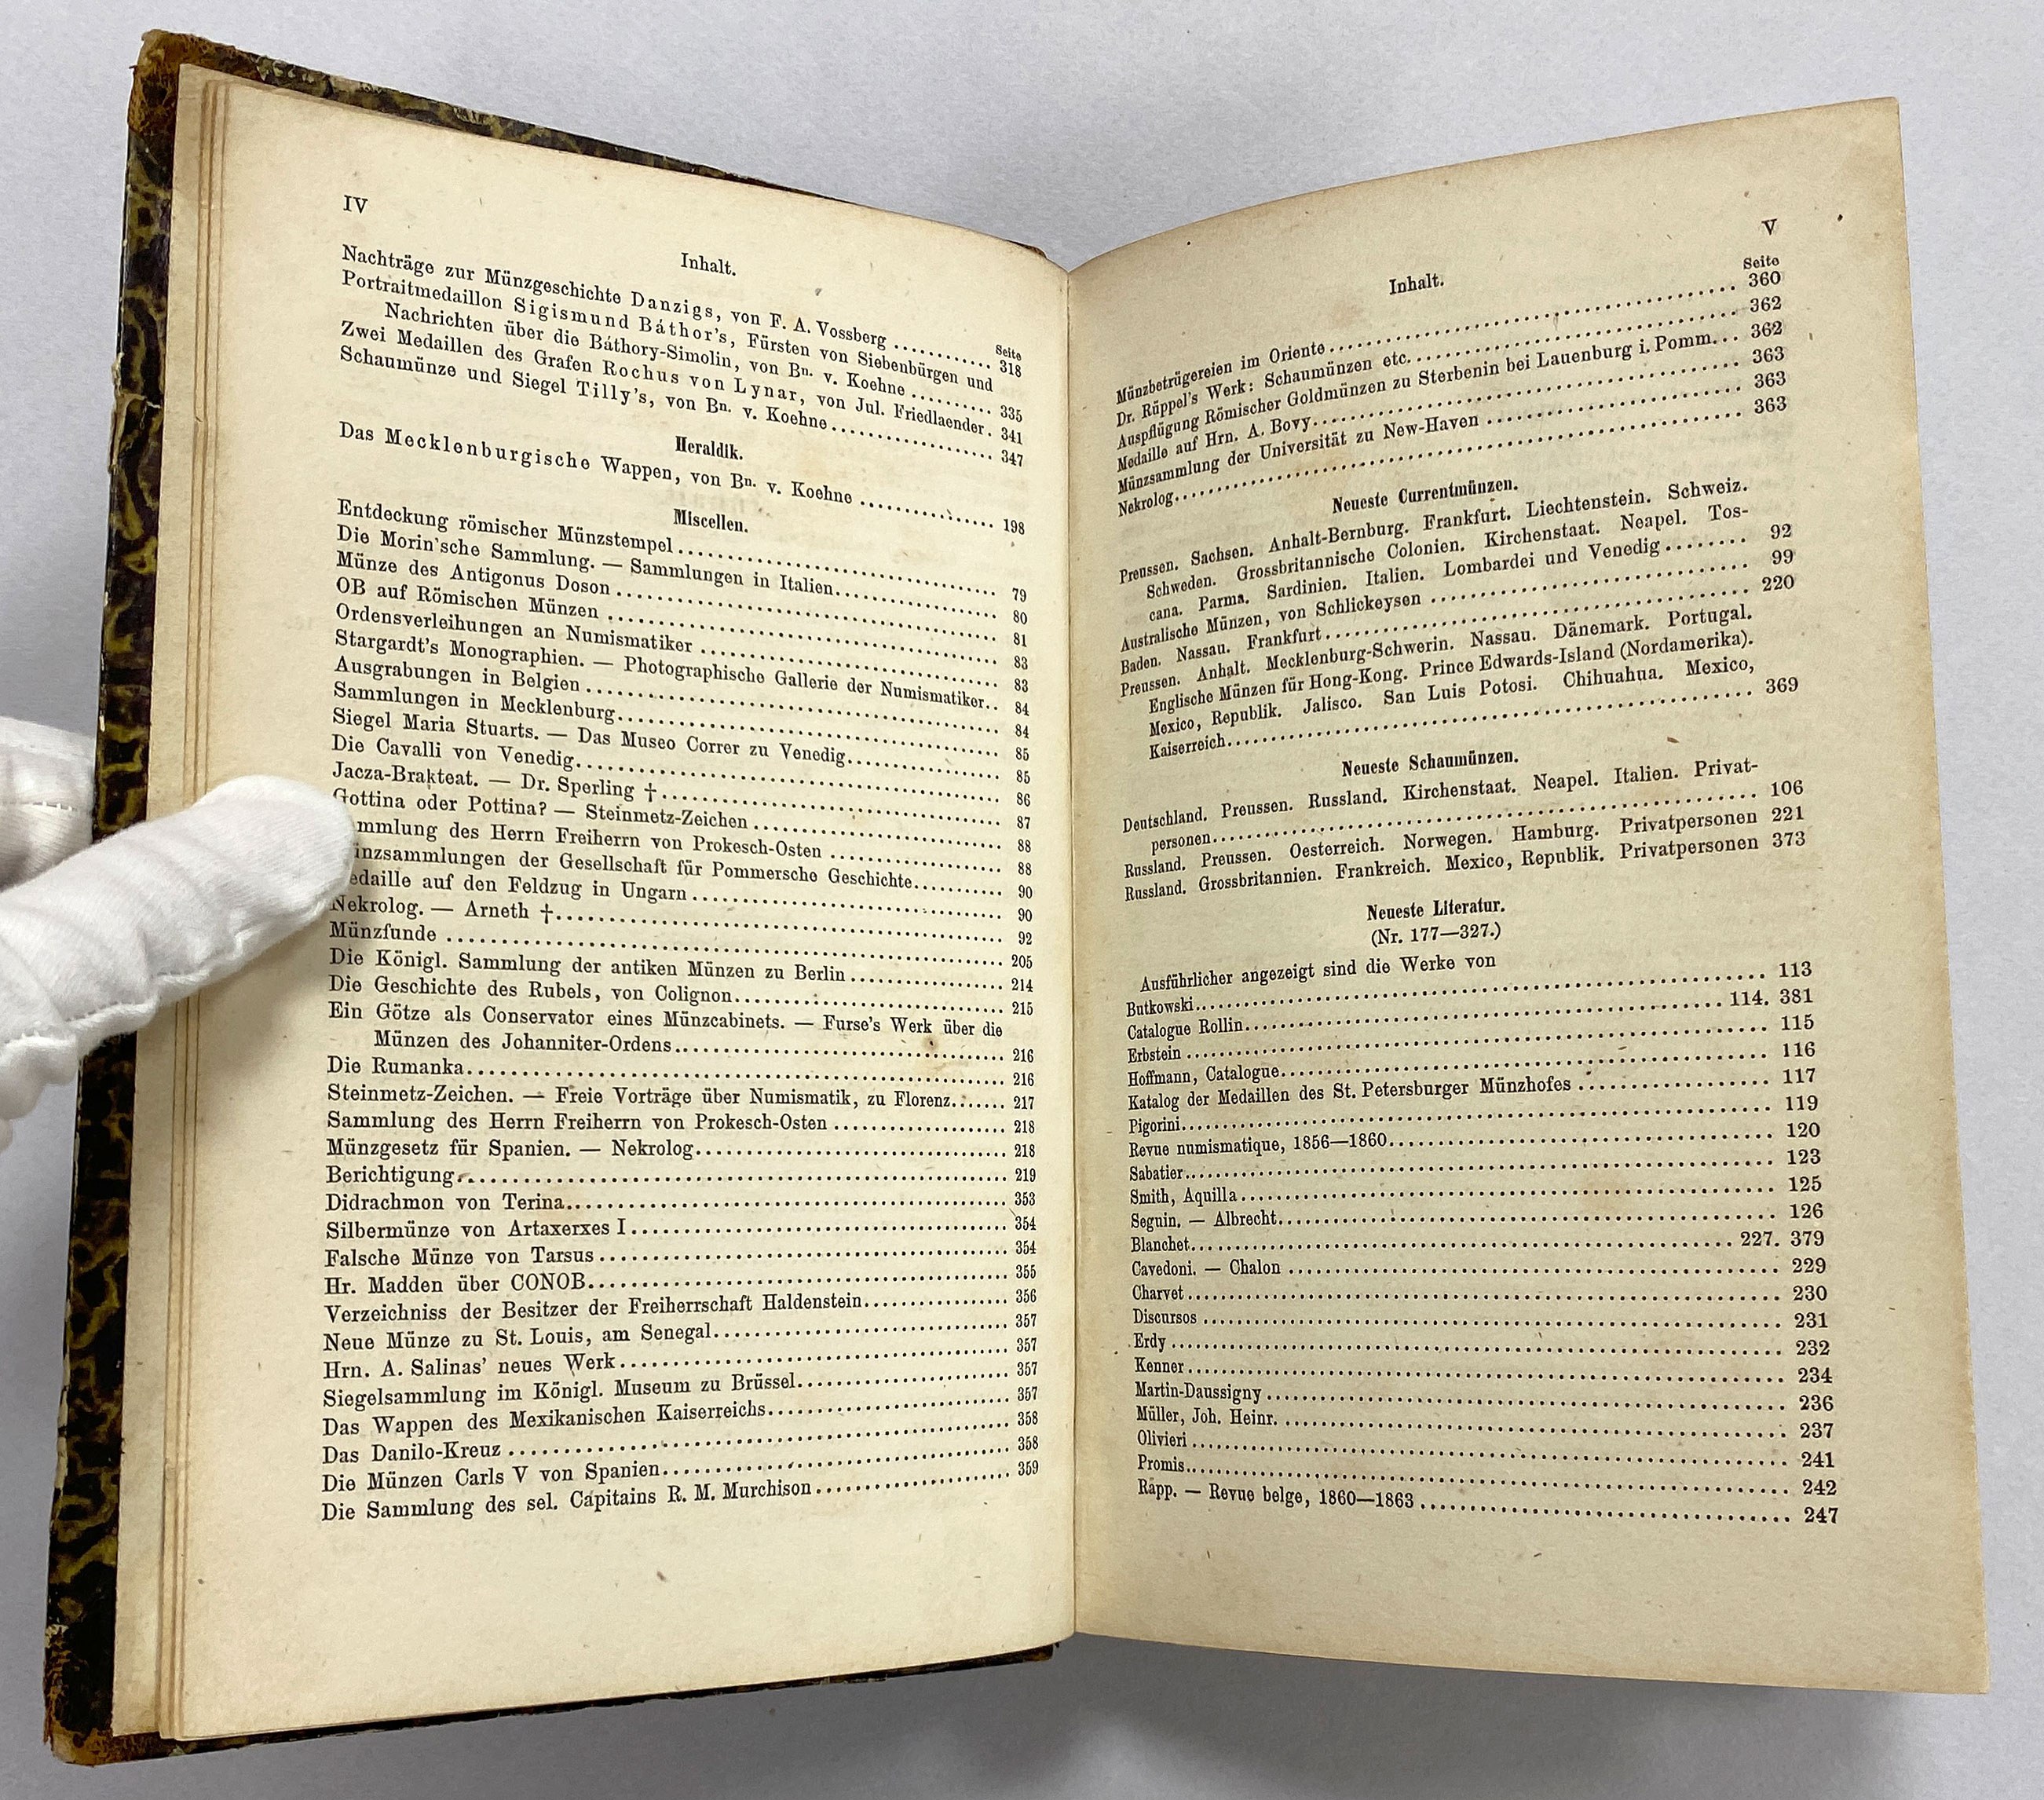 IV
Inhalt.
Seite
Nachträge zur Münzgeschichte Danzigs, von F. A. Vossberg .......... 318
Portraitmedaillon Sigismund Báthor's, Fürsten von Siebenbürgen und
Nachrichten über die Báthory-Simolin, von Bn. v. Koehne .......... 335
Zwei Medaillen des Grafen Rochus von Lynar, von Jul. Friedlaender. 341
Schaumünze und Siegel Tilly's, von Bn. v. Koehne .......... 347
Heraldik.
Das Mecklenburgische Wappen, von Bn. v. Koehne .......... 198
Miscellen.
Entdeckung römischer Münzstempel .......... 79
Die Morin'sche Sammlung. — Sammlungen in Italien .......... 80
Münze des Antigonus Doson .......... 81
OB auf Römischen Münzen .......... 83
Ordensverleihungen an Numismatiker .......... 83
Stargardt's Monographien. — Photographische Gallerie der Numismatiker.. 84
Ausgrabungen in Belgien .......... 84
Sammlungen in Mecklenburg .......... 85
Siegel Maria Stuarts. — Das Museo Correr zu Venedig .......... 85
Die Cavalli von Venedig .......... 86
Jacza-Brakteat. — Dr. Sperling † .......... 87
Gottina oder Pottina? — Steinmetz-Zeichen .......... 88
ammlung des Herrn Freiherrn von Prokesch-Osten .......... 88
ünzsammlungen der Gesellschaft für Pommersche Geschichte .......... 90
edaille auf den Feldzug in Ungarn .......... 90
Nekrolog. — Arneth † .......... 92
Münzfunde .......... 205
Die Königl. Sammlung der antiken Münzen zu Berlin .......... 214
Die Geschichte des Rubels, von Colignon .......... 215
Ein Götze als Conservator eines Münzcabinets. — Furse's Werk über die
Münzen des Johanniter-Ordens .......... 216
Die Rumanka .......... 216
Steinmetz-Zeichen. — Freie Vorträge über Numismatik, zu Florenz ....... 217
Sammlung des Herrn Freiherrn von Prokesch-Osten .......... 218
Münzgesetz für Spanien. — Nekrolog .......... 218
Berichtigung .......... 219
Didrachmon von Terina .......... 353
Silbermünze von Artaxerxes I .......... 354
Falsche Münze von Tarsus .......... 354
Hr. Madden über CONOB .......... 355
Verzeichniss der Besitzer der Freiherrschaft Haldenstein .......... 356
Neue Münze zu St. Louis, am Senegal .......... 357
Hrn. A. Salinas' neues Werk .......... 357
Siegelsammlung im Königl. Museum zu Brüssel .......... 357
Das Wappen des Mexikanischen Kaiserreichs .......... 357
Das Danilo-Kreuz .......... 358
Die Münzen Carls V von Spanien .......... 358
Die Sammlung des sel. Capitains R. M. Murchison .......... 359
V
Inhalt.
Seite
Münzbetrügereien im Oriente .......... 360
Dr. Rüppel's Werk: Schaumünzen etc. .......... 362
Auspflügung Römischer Goldmünzen zu Sterbenin bei Lauenburg i. Pomm... 362
Medaille auf Hrn. A. Bovy .......... 363
Münzsammlung der Universität zu New-Haven .......... 363
Nekrolog .......... 363
Neueste Currentmünzen.
Preussen. Sachsen. Anhalt-Bernburg. Frankfurt. Liechtenstein. Schweiz.
Schweden. Grossbritannische Colonien. Kirchenstaat. Neapel. Tos-
cana. Parma. Sardinien. Italien. Lombardei und Venedig ........ 92
Australische Münzen, von Schlickeysen .......... 99
Baden. Nassau. Frankfurt .......... 220
Preussen. Anhalt. Mecklenburg-Schwerin. Nassau. Dänemark. Portugal.
Englische Münzen für Hong-Kong. Prince Edwards-Island (Nordamerika).
Mexico, Republik. Jalisco. San Luis Potosi. Chihuahua. Mexico,
Kaiserreich .......... 369
Neueste Schaumünzen.
Deutschland. Preussen. Russland. Kirchenstaat. Neapel. Italien. Privat-
personen .......... 106
Russland. Preussen. Oesterreich. Norwegen. Hamburg. Privatpersonen 221
Russland. Grossbritannien. Frankreich. Mexico, Republik. Privatpersonen 373
Neueste Literatur.
(Nr. 177—327.)
Ausführlicher angezeigt sind die Werke von
Butkowski .......... 113
Catalogue Rollin .......... 114. 381
Erbstein .......... 115
Hoffmann, Catalogue .......... 116
Katalog der Medaillen des St. Petersburger Münzhofes .......... 117
Pigorini .......... 119
Revue numismatique, 1856—1860 .......... 120
Sabatier .......... 123
Smith, Aquilla .......... 125
Seguin. — Albrecht .......... 126
Blanchet .......... 227. 379
Cavedoni. — Chalon .......... 229
Charvet .......... 230
Discursos .......... 231
Erdy .......... 232
Kenner .......... 234
Martin-Daussigny .......... 236
Müller, Joh. Heinr. .......... 237
Olivieri .......... 241
Promis .......... 242
Rapp. — Revue belge, 1860—1863 .......... 247